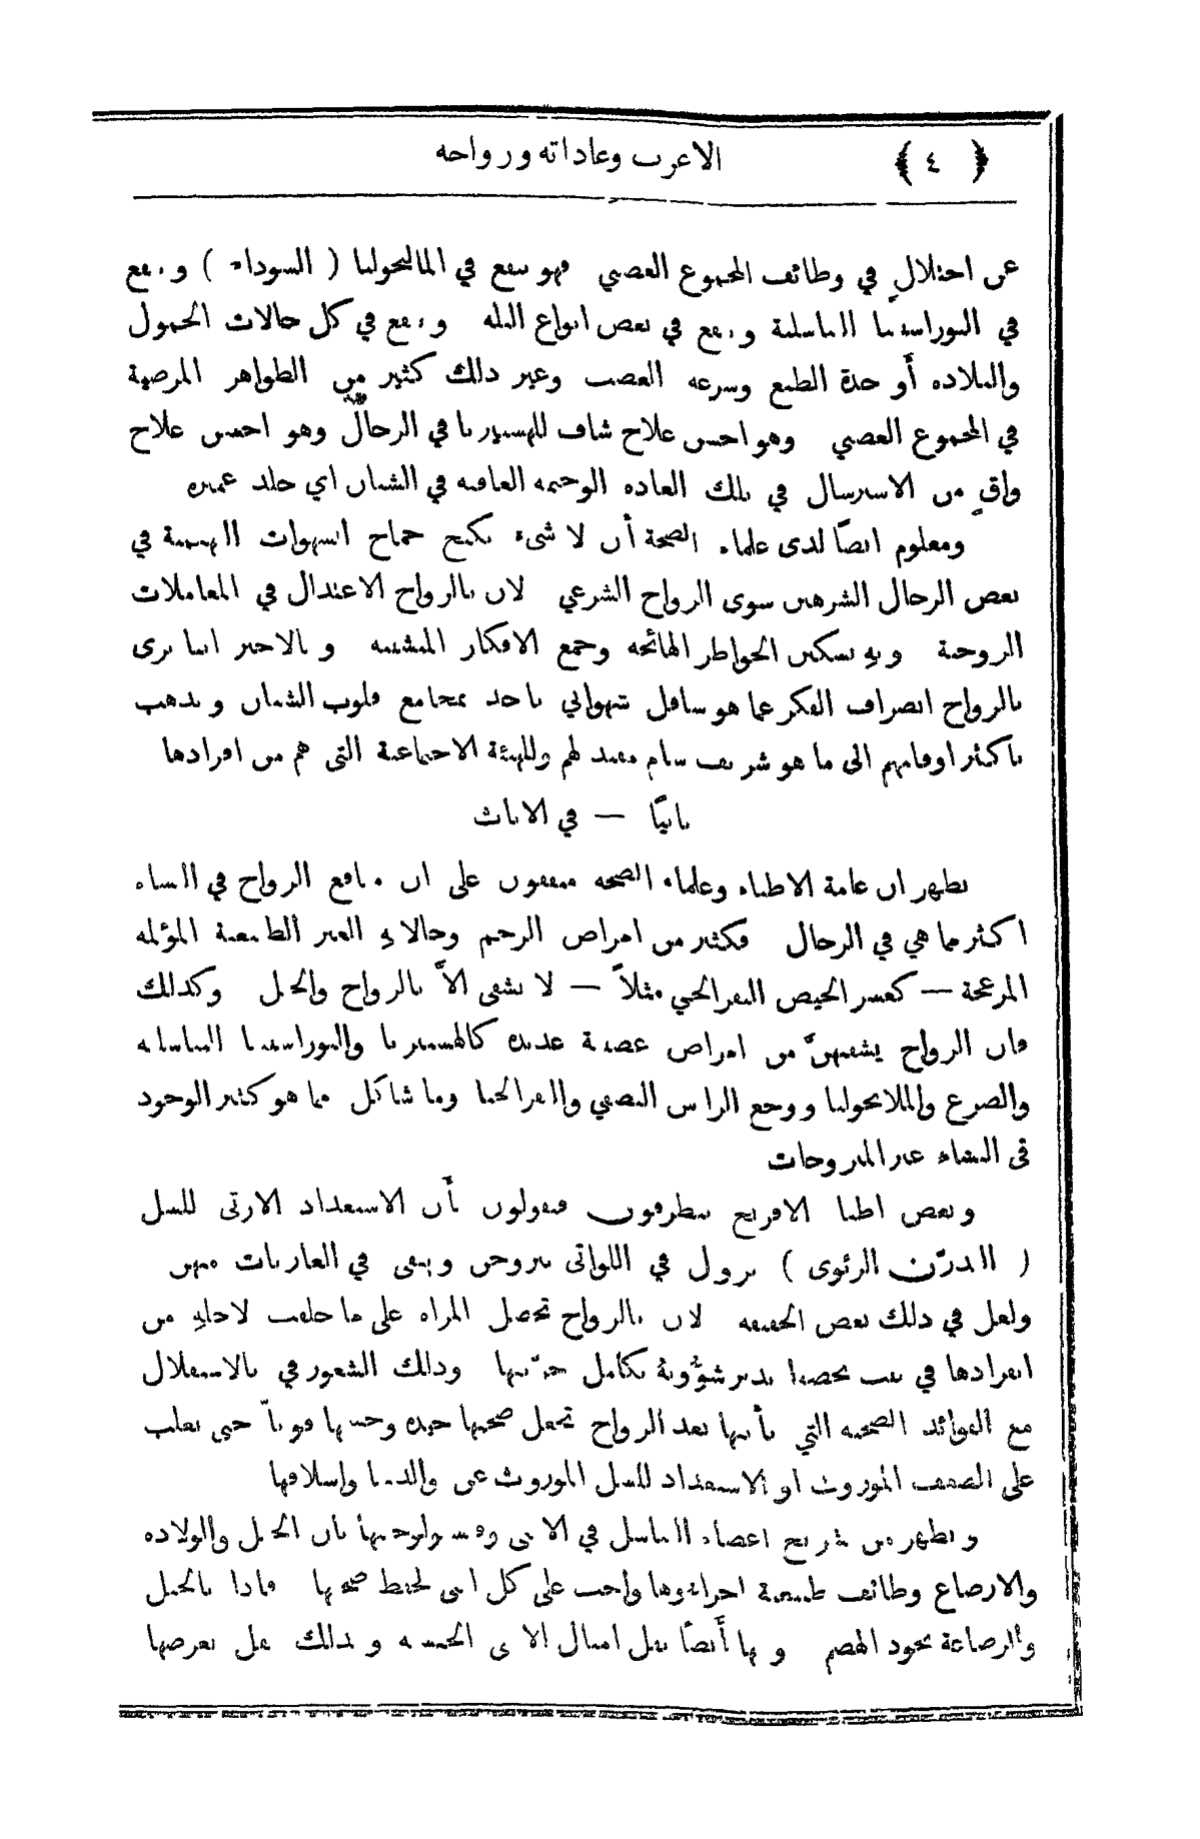 ﴿ ٤ ﴾ الاعزب وعاداته وزواجه
عن اختلالٍ في وظائف المجموع العصبي فهو ينفع في المالنخوليا ( السوداء ) وينفع
في النوراستينيا التناسلية وينفع في بعض انواع البله وينفع في كل حالات الخمول
والبلاده أو حدة الطبع وسرعه الغضب وغير ذلك كثير من الظواهر المرضية
في المجموع العصبي وهو احسن علاج شاف للهستيريا في الرجال وهو احسن علاج
واقٍ من الاسترسال في تلك العاده الوخيمه العاقبه في الشبان اي جلد عميره
ومعلوم ايضاً لدى علماء الصحة أن لا شىء يكبح جماح الشهوات البهيمية في
بعض الرجال الشرهين سوى الزواج الشرعي لان بالزواج الاعتدال في المعاملات
الزوجية وبهِ تسكين الخواطر الهائجه وجمع الافكار المتشتته وبالاختبار اننا نرى
بالزواج انصراف الفكر عما هو سافل شهواني ياخذ بمجامع قلوب الشبان ويذهب
باكثر اوقاتهم الى ما هو شريف سامٍ مفيد لهم وللهيئة الاجتماعية التى هم من افرادها
ثانيًا — في الاناث
يظهر ان عامة الاطباء وعلماء الصحه متفقون على ان منافع الزواج في النساء
اكثر مما هي في الرجال فكثير من امراض الرحم وحالاتهِ الغير الطبيعية المؤلمه
المزعجة — كعسر الحيض النفرالجي مثلاً — لا تشفى الاَّ بالزواج والحبل وكذلك
فان الزواج يشفيهنَّ من امراض عصبية عديده كالهستيريا والنوراستينيا التناسليه
والصرع والملانخوليا ووجع الراس النصفي والنفرالجيا وما شاكل مما هو كثير الوجود
فى النساء غير المتزوجات
وبعض اطبا الافرنج يتطرفون فيقولون بأن الاستعداد الارثى للسل
( التدرّن الرئوى ) يزول في اللواتى يتزوجن ويبقى في العازبات منهن
ولعل في ذلك بعض الحقيقه لان بالزواج تحصل المراه على ما خلقت لاجلهِ من
انفرادها في بيت يخصها تدير شؤونه بكامل حرّيتها وذلك الشعور في بالاستقلال
مع الفوائد الصحيه التي تأتيها بعد الزواج تجعل صحتها جيده وجسمها قوياً حتى يتغلب
على الضعف الموروث او الاستعداد للسل الموروث عن والديها واسلافها
ويظهر من تشريح اعضاء التناسل في الانثى وفسيولوجيتها بان الحبل والولاده
والارضاع وظائف طبيعية اجراؤها واجب على كل انثى لحفظ صحتها فاذا بالحبل
والرضاعة يجود الهضم وبها أيضاً يقل اميال الانثى الجنسيه وبذلك يقل تعرضها